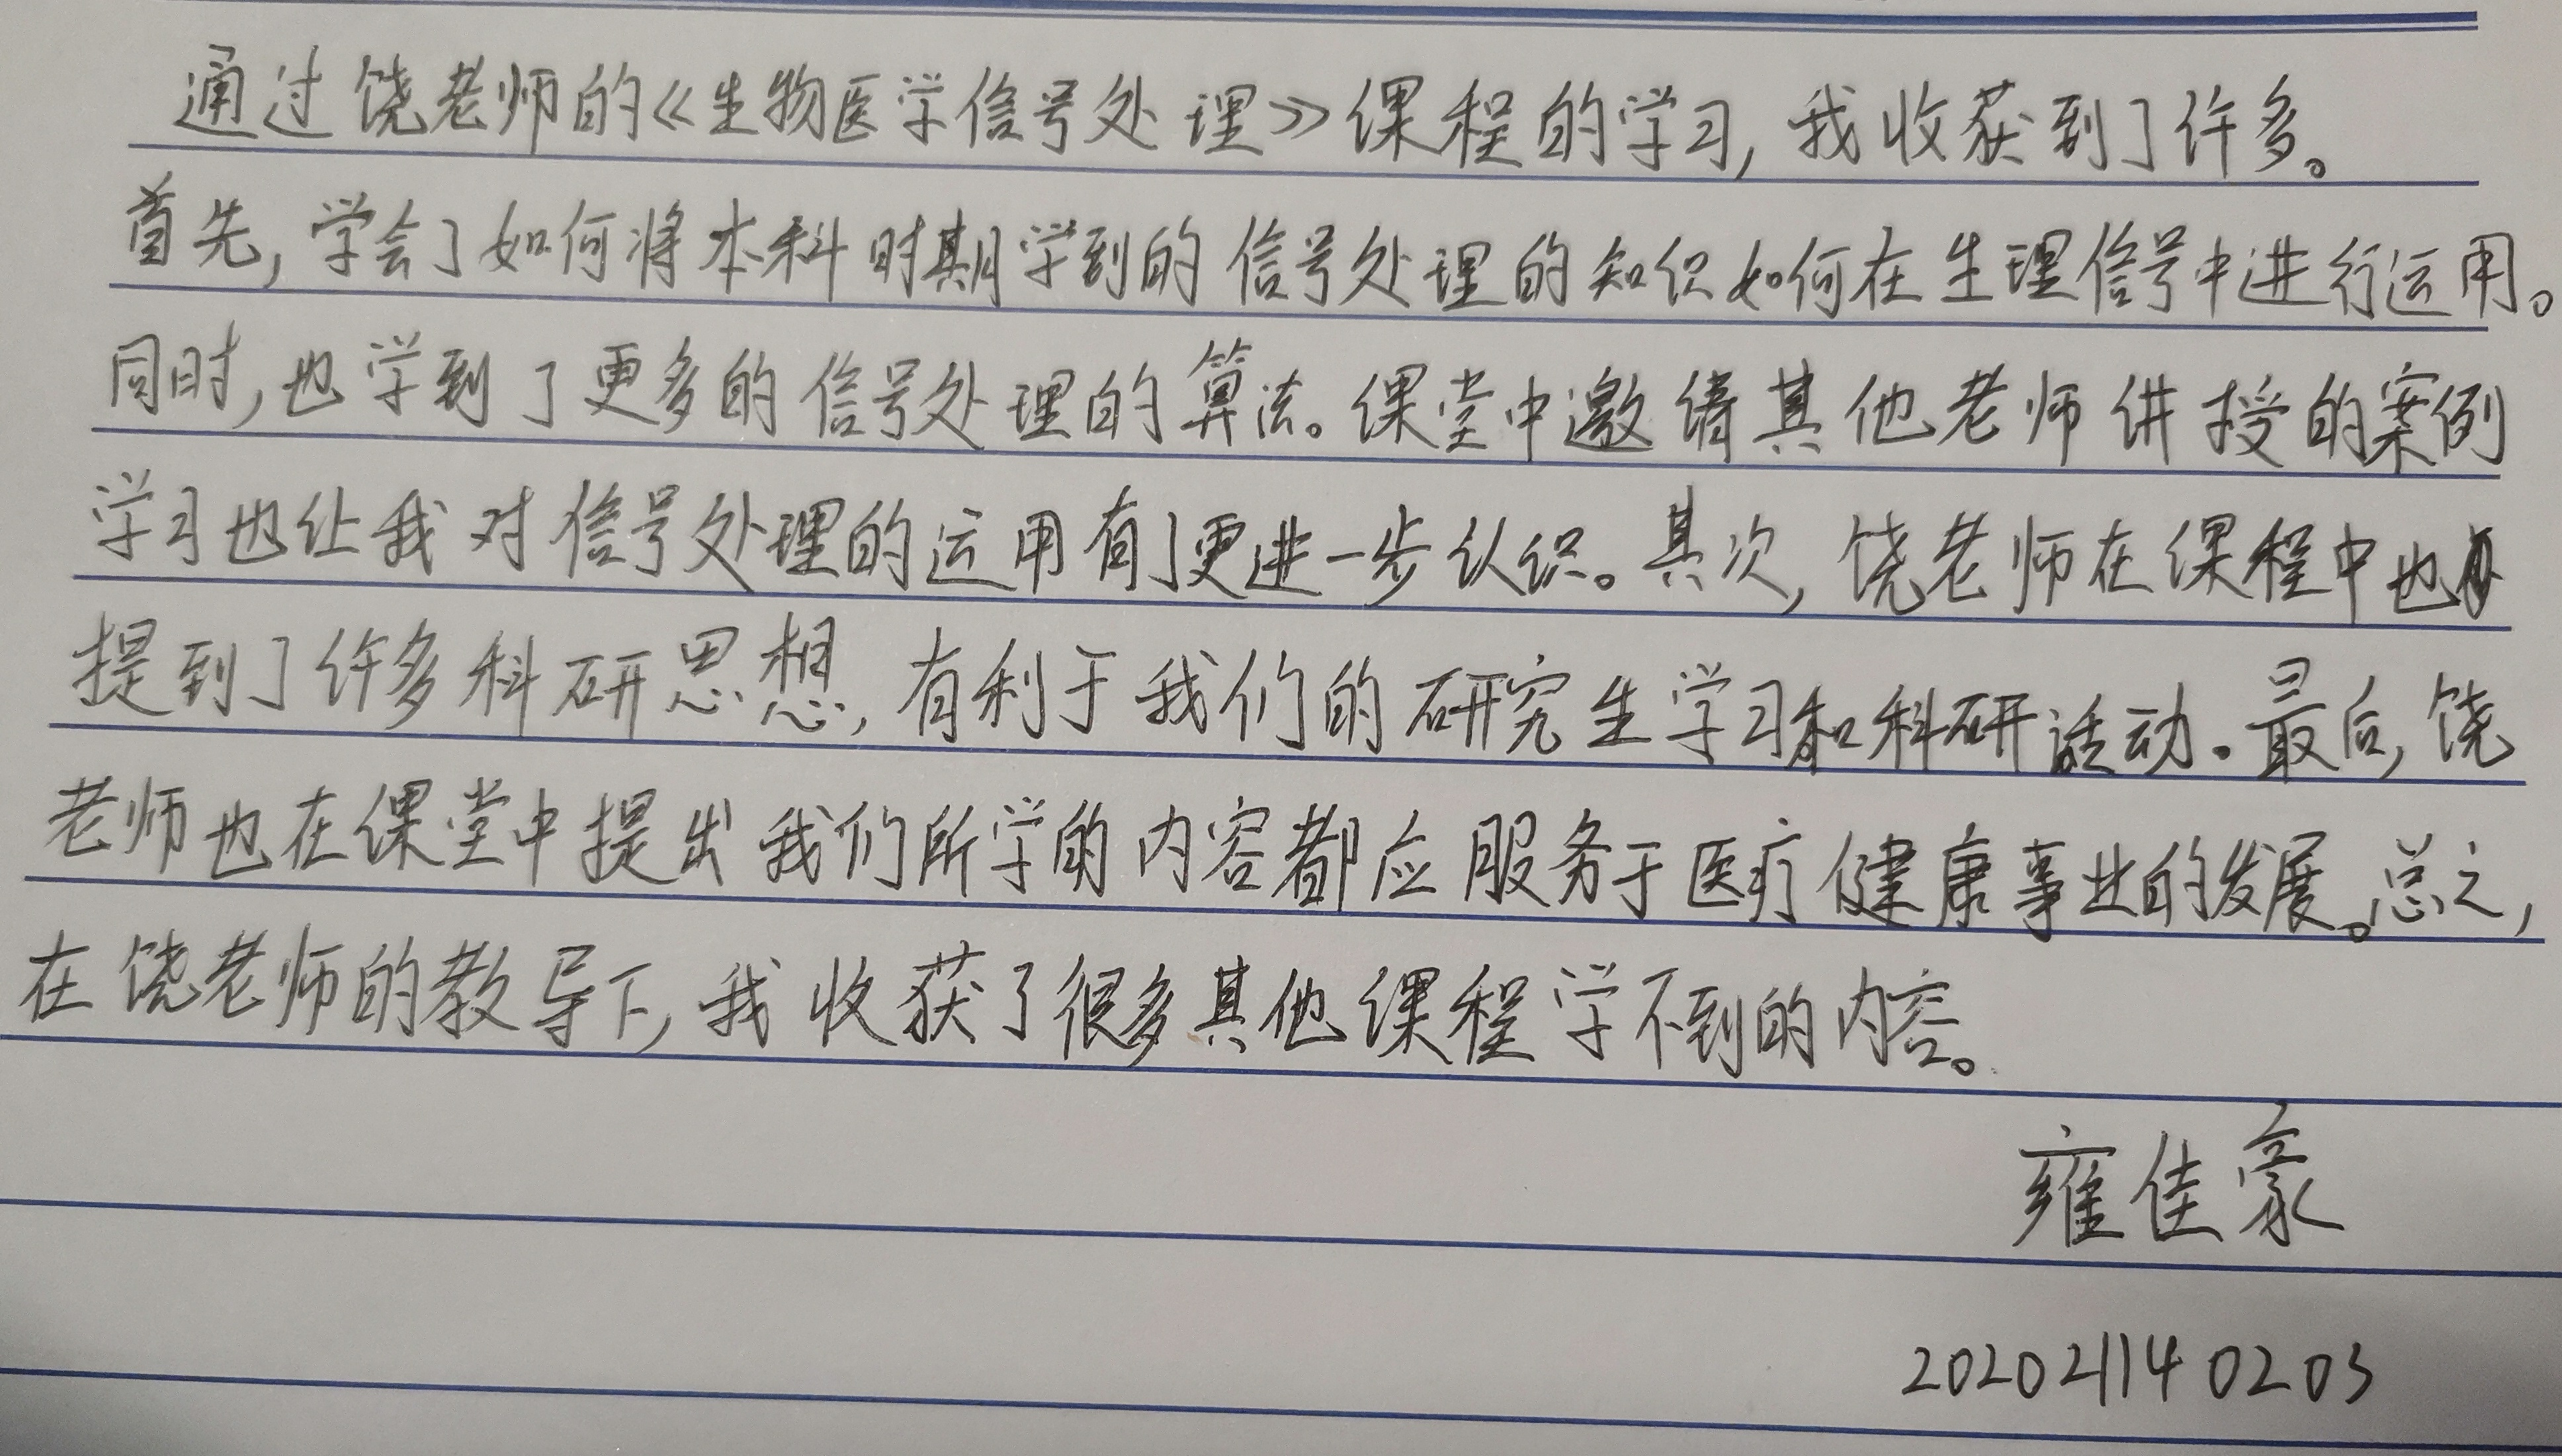 通过饶老师的《生物医学信号处理》课程的学习,我收获到了许多。
首先,学会了如何将本科时期学到的信号处理的知识如何在生理信号中进行运用。
同时,也学到了更多的信号处理的算法。课堂中邀请其他老师讲授的案例
学习也让我对信号处理的运用有了更进一步认识。其次,饶老师在课程中也
提到了许多科研思想,有利于我们的研究生学习和科研活动。最后,饶
老师也在课堂中提出我们所学的内容都应服务于医疗健康事业的发展。总之,
在饶老师的教导下,我收获了很多其他课程学不到的内容。
雍佳豪
202021140203